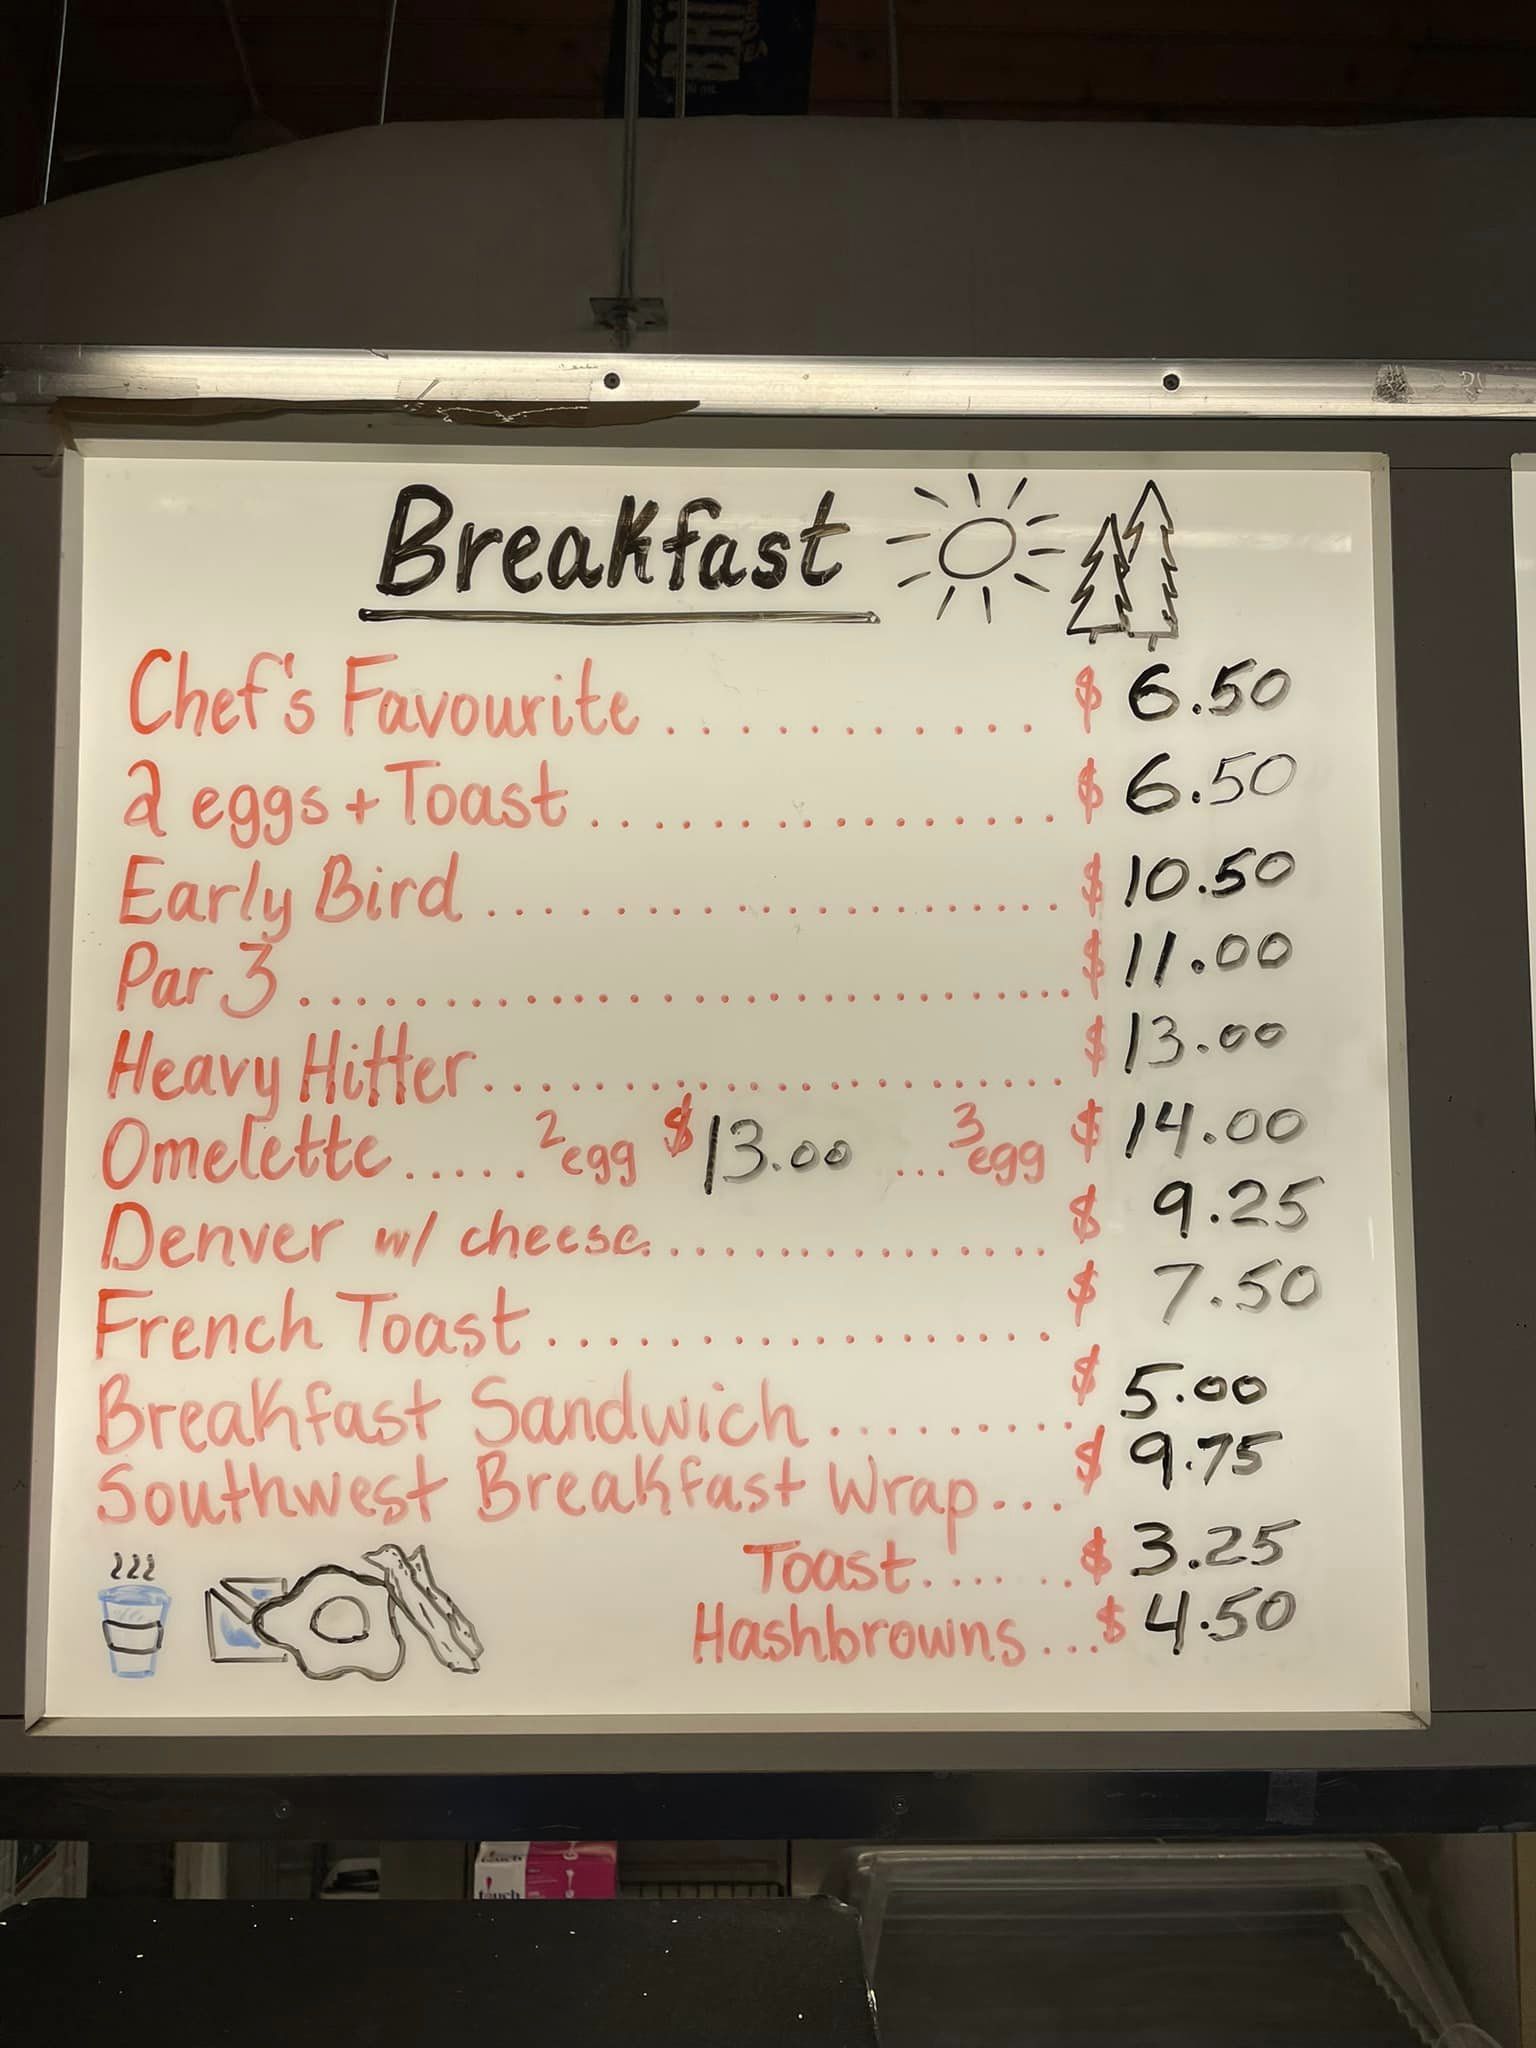 Breakfast
Chef's Favourite ............ $ 6.50
2 eggs + Toast ............... $ 6.50
Early Bird .................... $ 10.50
Par 3 ............................. $ 11.00
Heavy Hitter ...................... $ 13.00
Omelette ..... 2 egg $ 13.00 ... 3 egg $ 14.00
Denver w/ cheese ................ $ 9.25
French Toast .................. $ 7.50
Breakfast Sandwich ......... $ 5.00
Southwest Breakfast Wrap ... $ 9.75
Toast ...... $ 3.25
Hashbrowns ... $ 4.50
touch